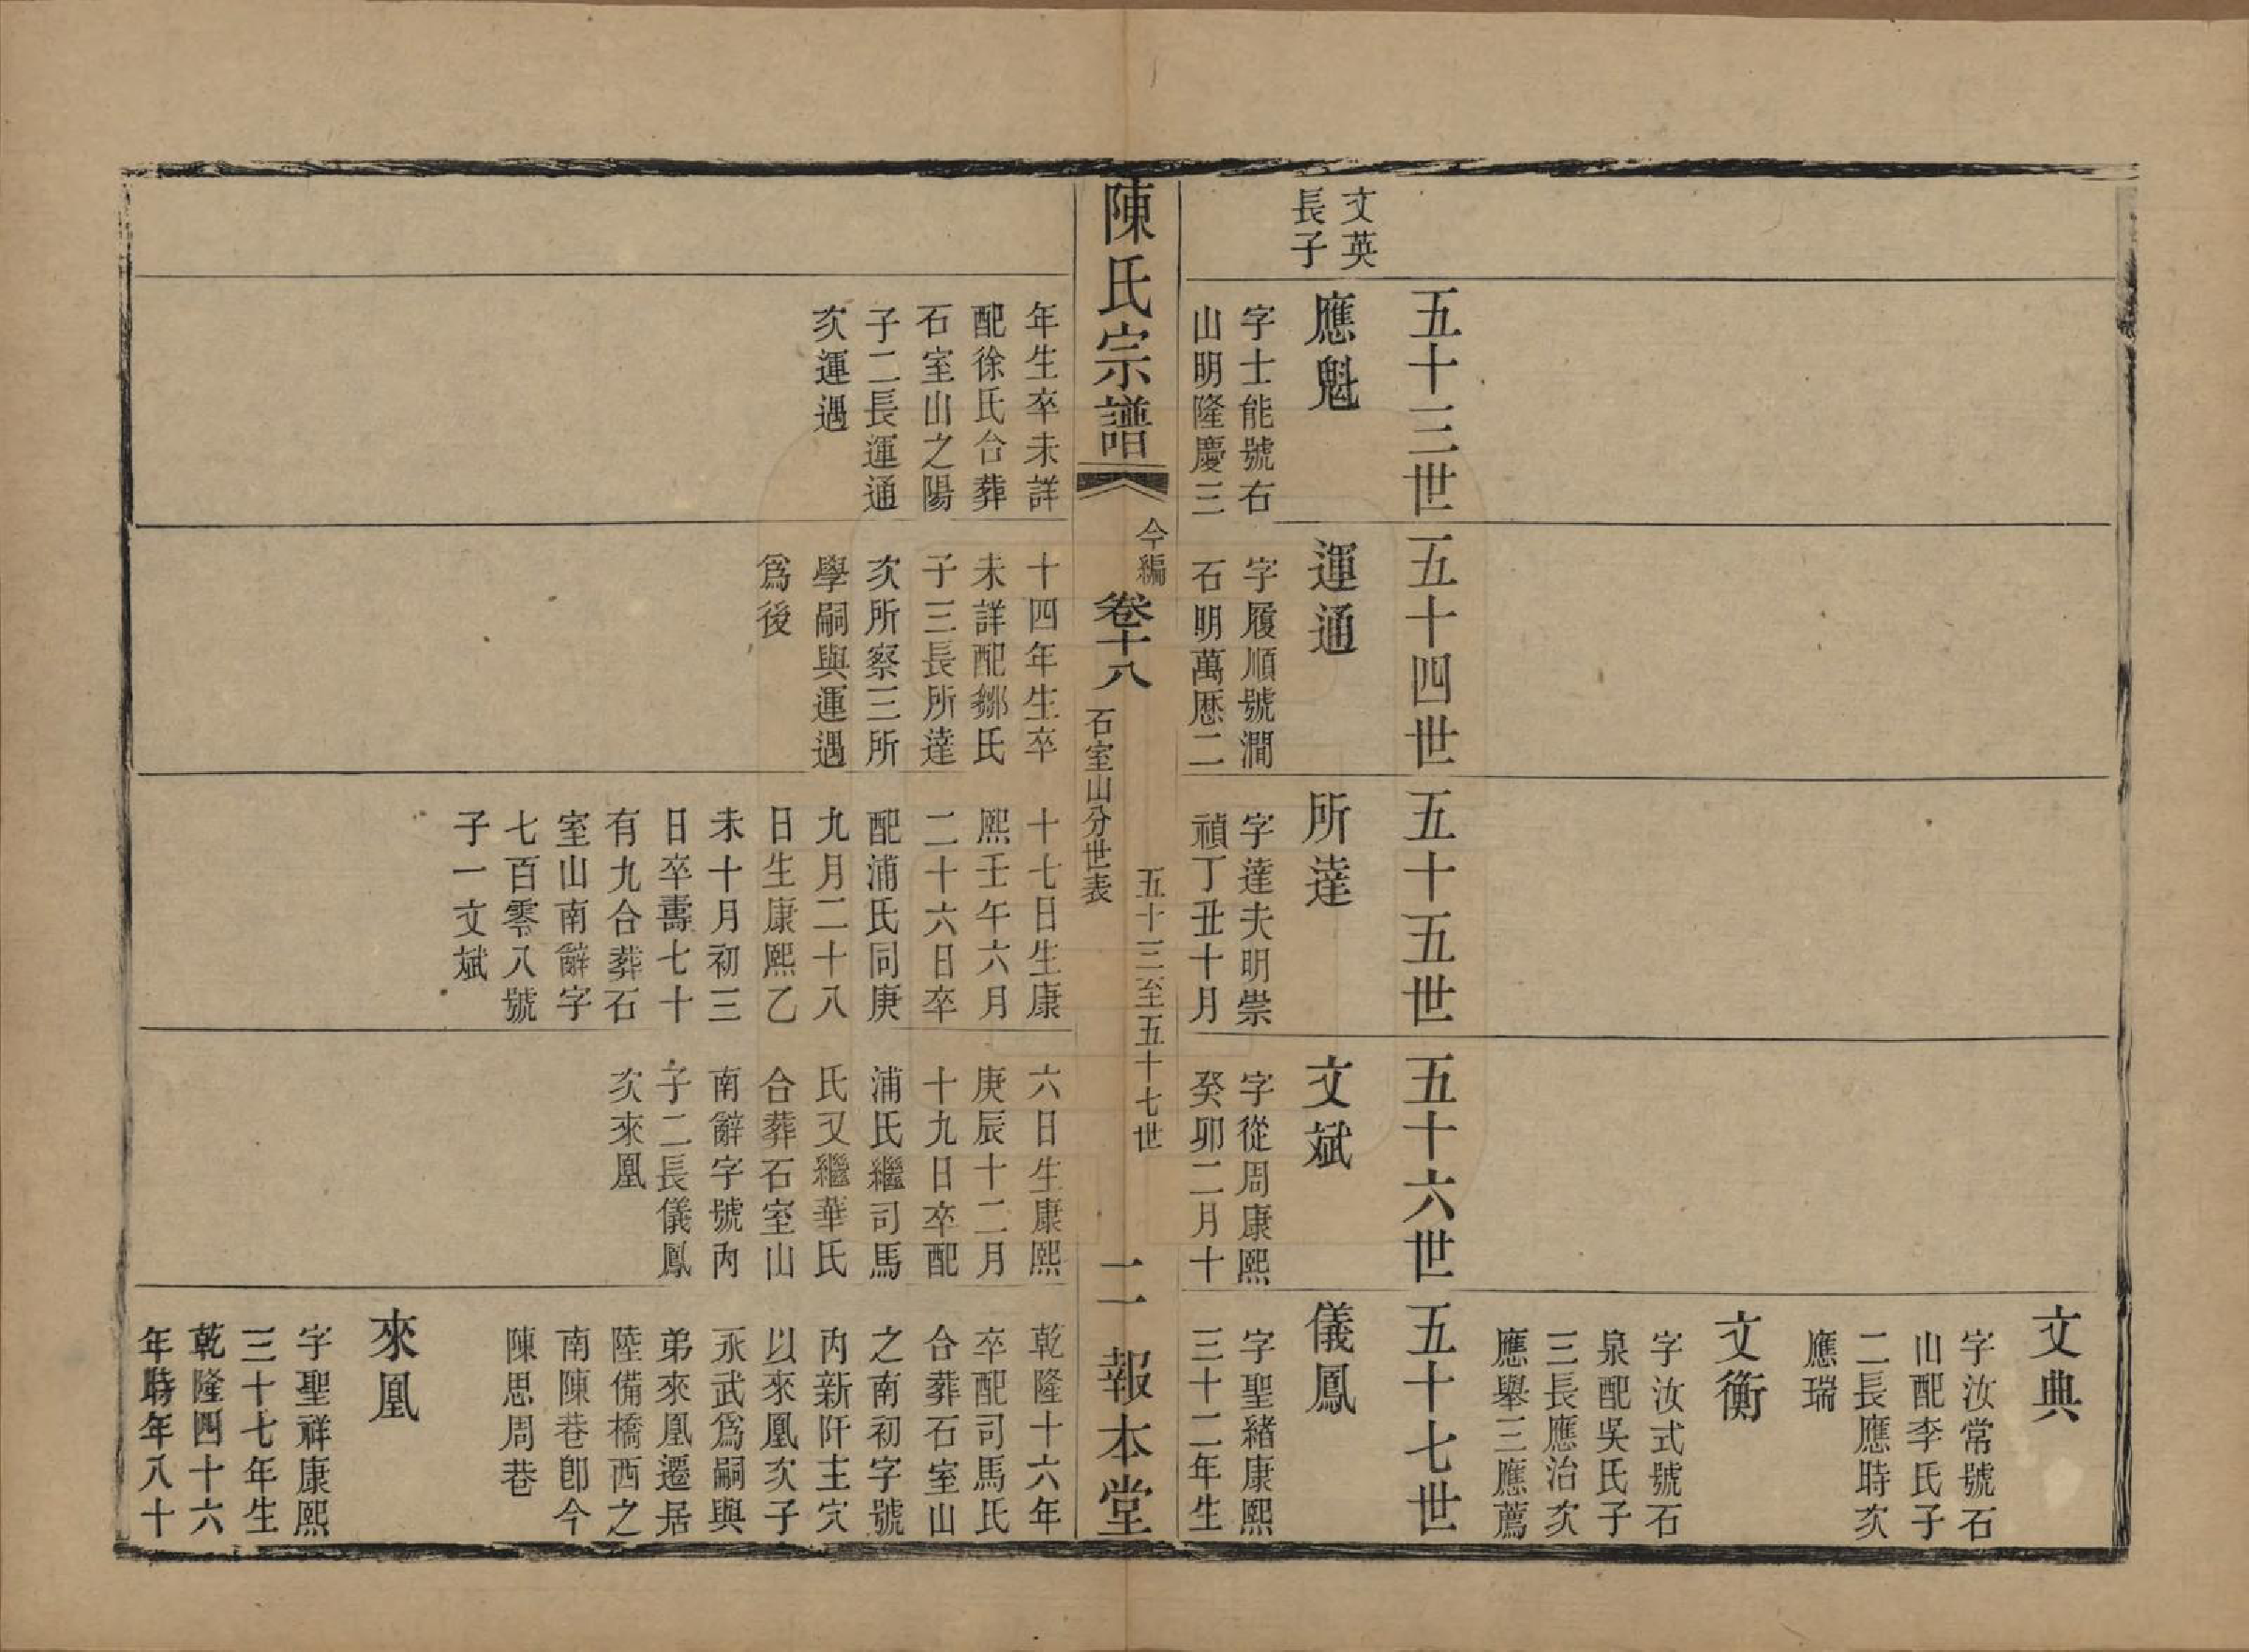 文典
字汝常號石
山配李氏子
二長應時次
應瑞
文衡
字汝式號石
泉配吳氏子
三長應治次
應舉三應薦
五十三世
五十四世
五十五世
五十六世
五十七世
文英
長子
應魁
字士能號右
山明隆慶三
年生卒未詳
配徐氏合葬
石室山之陽
子二長運通
次運遇
運通
字履順號澗
石明萬厯二
十四年生卒
未詳配鄒氏
子三長所達
次所察三所
學嗣與運遇
爲後
所達
字達夫明崇
禎丁丑十月
十七日生康
熙壬午六月
二十六日卒
配浦氏同庚
九月二十八
日生康熙乙
未十月初三
日卒壽七十
有九合葬石
室山南辭字
七百零八號
子一文斌
文斌
字從周康熙
癸卯二月十
六日生康熙
庚辰十二月
十九日卒配
浦氏繼司馬
氏又繼華氏
合葬石室山
南辭字號內
子二長儀鳳
次來凰
儀鳳
字聖緒康熙
三十二年生
乾隆十六年
卒配司馬氏
合葬石室山
之南初字號
內新阡主穴
以來凰次子
永武爲嗣與
弟來凰遷居
陸備橋西之
南陳巷卽今
陳思周巷
來凰
字聖祥康熙
三十七年生
乾隆四十六
年時年八十
陳氏宗譜
今編
卷十八
石室山分世表
五十三至五十七世
二
報本堂